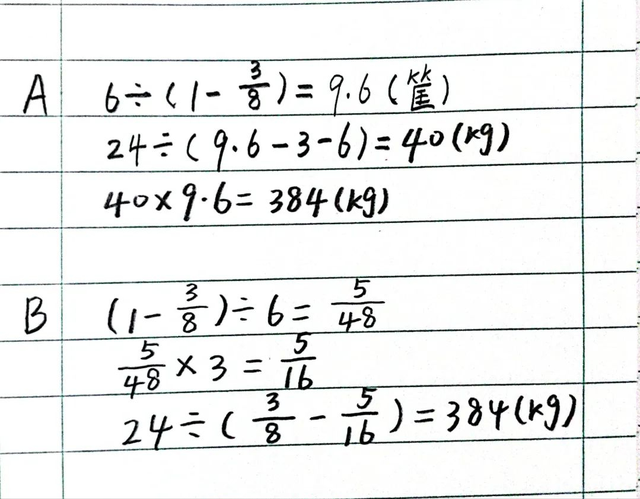 A 6÷(1-3/8)=9.6(筐)
24÷(9.6-3-6)=40(kg)
40×9.6=384(kg)
B (1-3/8)÷6=5/48
5/48×3=5/16
24÷(3/8-5/16)=384(kg)